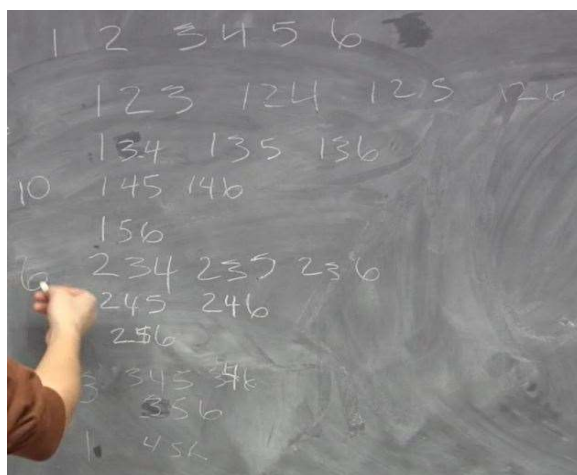 1 2 3 4 5 6
123 124 125 126
134 135 136
10 145 146
156
6 234 235 236
245 246
256
3 345 346
356
1 456